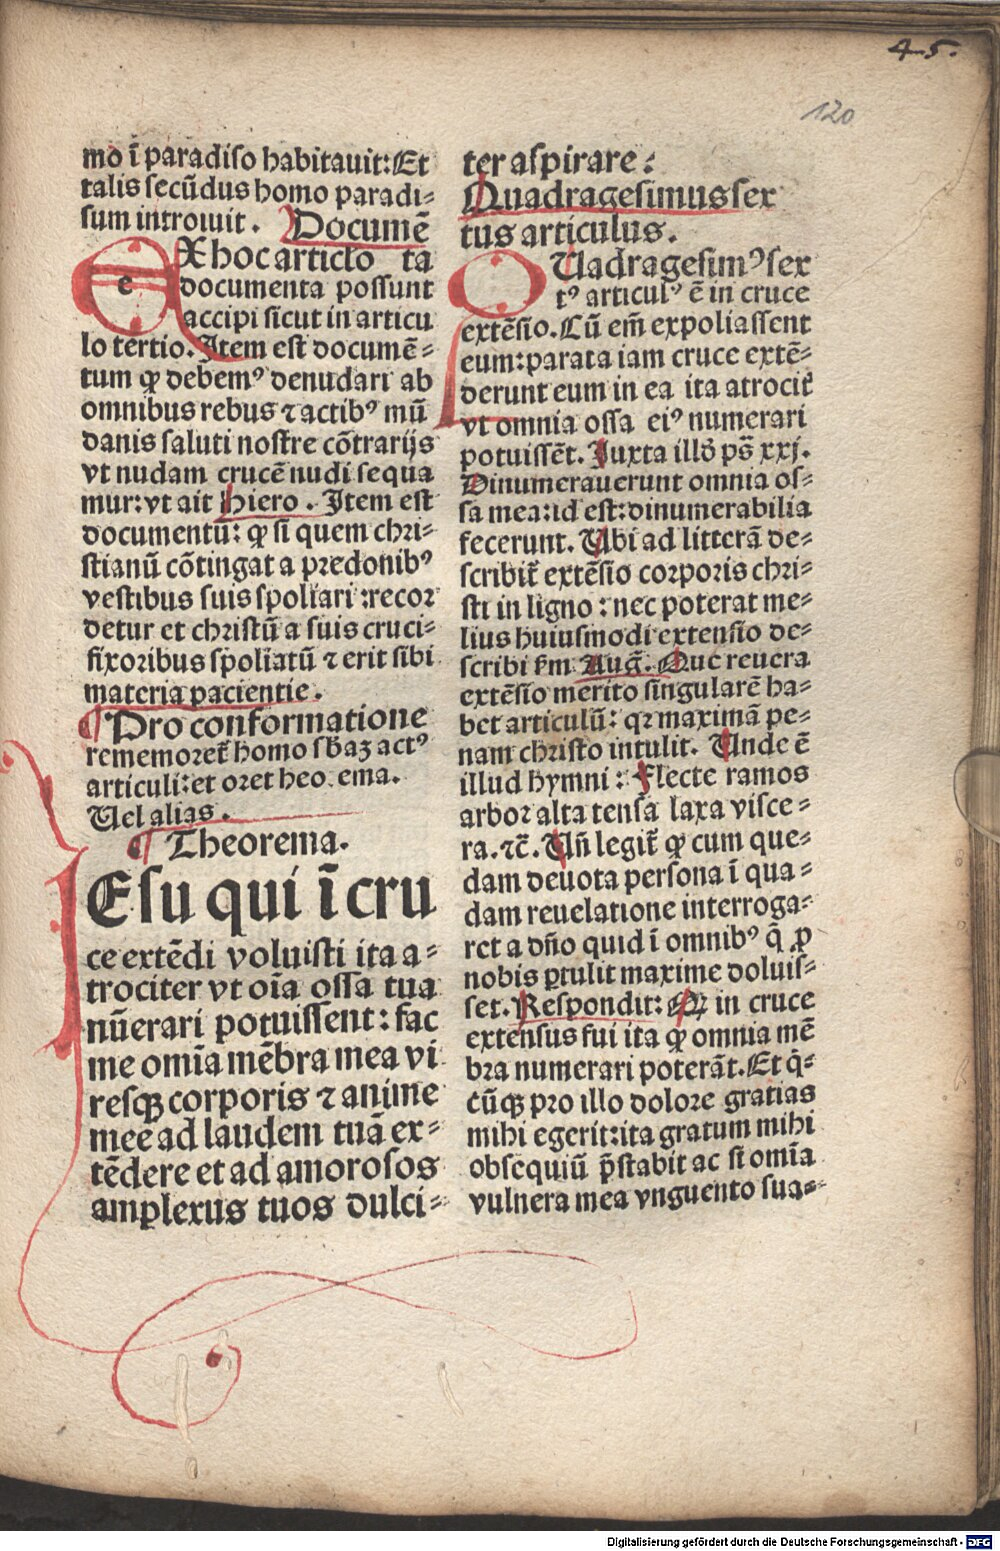 45.
120
mo ī paradiso habitauit: Et
talis secūdus homo paradi⸗
sum introiuit. Documē
EX hoc articlo ta
documenta possunt
accipi sicut in articu
lo tertio. Item est documē⸗
tum ꝙ debemꝰ denudari ab
omnibus rebus ⁊ actibꝰ mū
danis saluti nostre cōtrarijs
vt nudam crucē nudi sequa
mur: vt ait Hiero. Item est
documentū: ꝙ si quem chri⸗
stianū cōtingat a predonibꝰ
vestibus suis spoliari: recor
detur et christū a suis cruci⸗
fixoribus spoliatū ⁊ erit sibi
materia pacientie.
¶ Pro conformatione
rememoret̄ homo sbaꝫ actꝰ
articuli: et oret theo. ema.
Uel alias.
¶ Theorema.
IEsu qui ī cru
ce extēdi voluisti ita a⸗
trociter vt oīa ossa tua
nūerari potuissent: fac
me omīa mēbra mea vi
resqꝫ corporis ⁊ anime
mee ad laudem tuā ex⸗
tēdere et ad amorosos
amplexus tuos dulci⸗
ter aspirare:
Quadragesimussex
tus articulus.
QUadragesimꝰsex
tꝰ articulꝰ ē in cruce
extēsio. Cū em̄ expoliassent
eum: parata iam cruce extē⸗
derunt eum in ea ita atrocit̄
vt omnia ossa eiꝰ numerari
potuissēt. Iuxta illd̓ pš xxj.
Dinumerauerunt omnia os⸗
sa mea: id est: dinumerabilia
fecerunt. Ubi ad litterā de⸗
scribit̄ extēsio corporis chri⸗
sti in ligno: nec poterat me⸗
lius huiusmodi extensio de⸗
scribi km̄ Aug̃. Que reuera
extēsio merito singularē ha⸗
bet articulū: qꝛ maximā pe⸗
nam christo intulit. Unde ē
illud hymni: Flecte ramos
arbor alta tensa laxa visce⸗
ra. ⁊c̄. Un̄ legit̄ ꝙ cum que⸗
dam deuota persona ī qua⸗
dam reuelatione interroga⸗
ret a dn̄o quid ī omnibꝰ q̄ ꝓ
nobis ꝑtulit maxime doluis⸗
set. Respondit: Qꝛ in cruce
extensus fui ita ꝙ omnia mē
bra numerari poterāt. Et q̄⸗
cūqꝫ pro illo dolore gratias
mihi egerit: ita gratum mihi
obsequiū p̄stabit ac si omīa
vulnera mea vnguento sua⸗
Digitalisierung gefördert durch die Deutsche Forschungsgemeinschaft - DFG